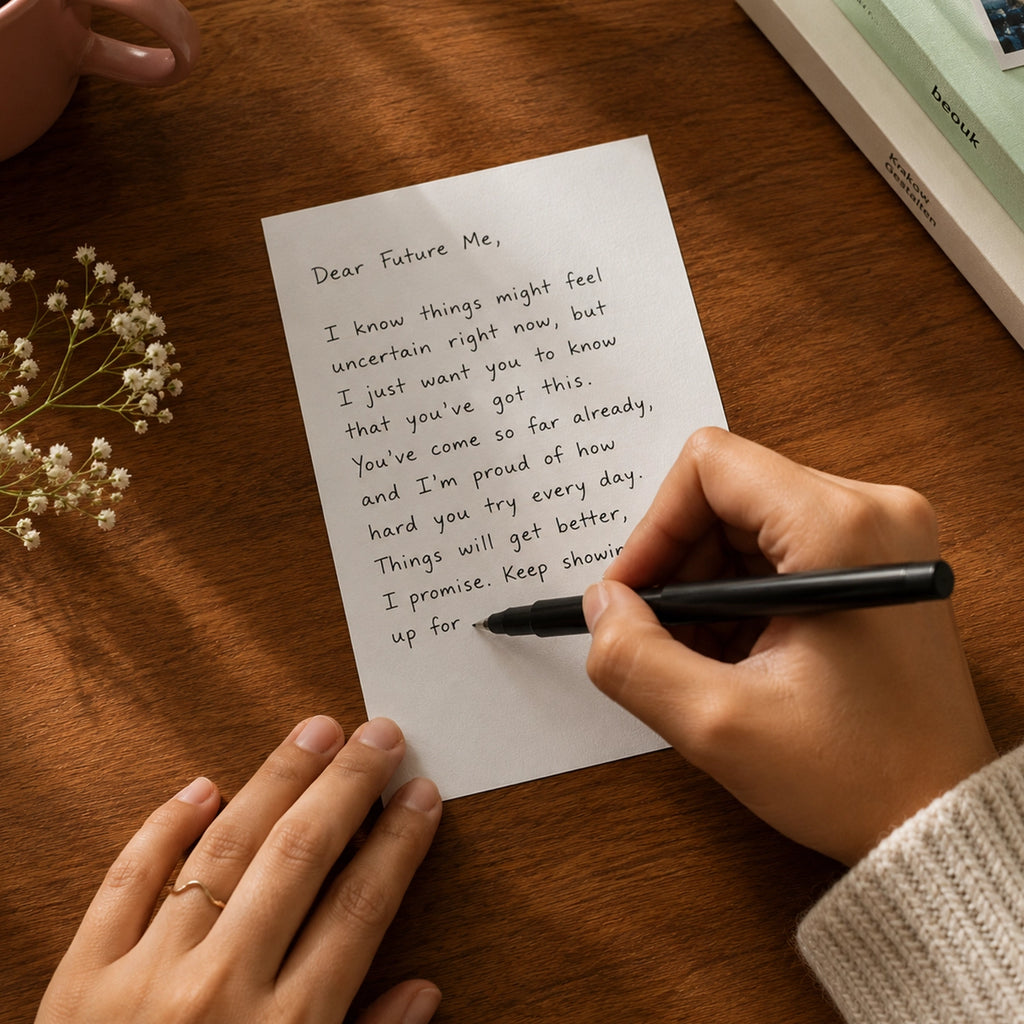 Dear Future Me,
I know things might feel
uncertain right now, but
I just want you to know
that you've got this.
You've come so far already,
and I'm proud of how
hard you try every day.
Things will get better,
I promise. Keep showin
up for
beouk
Krakow
Gestalten